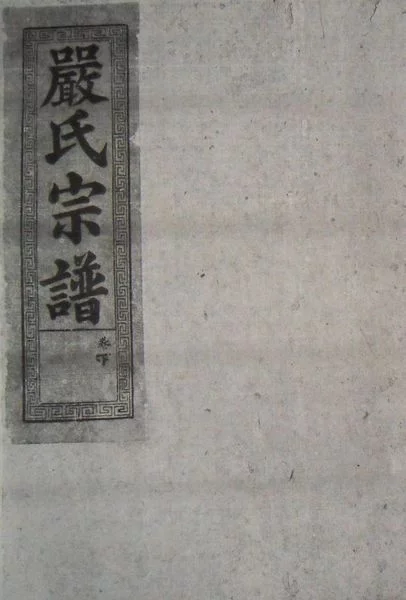 嚴氏宗譜
卷下